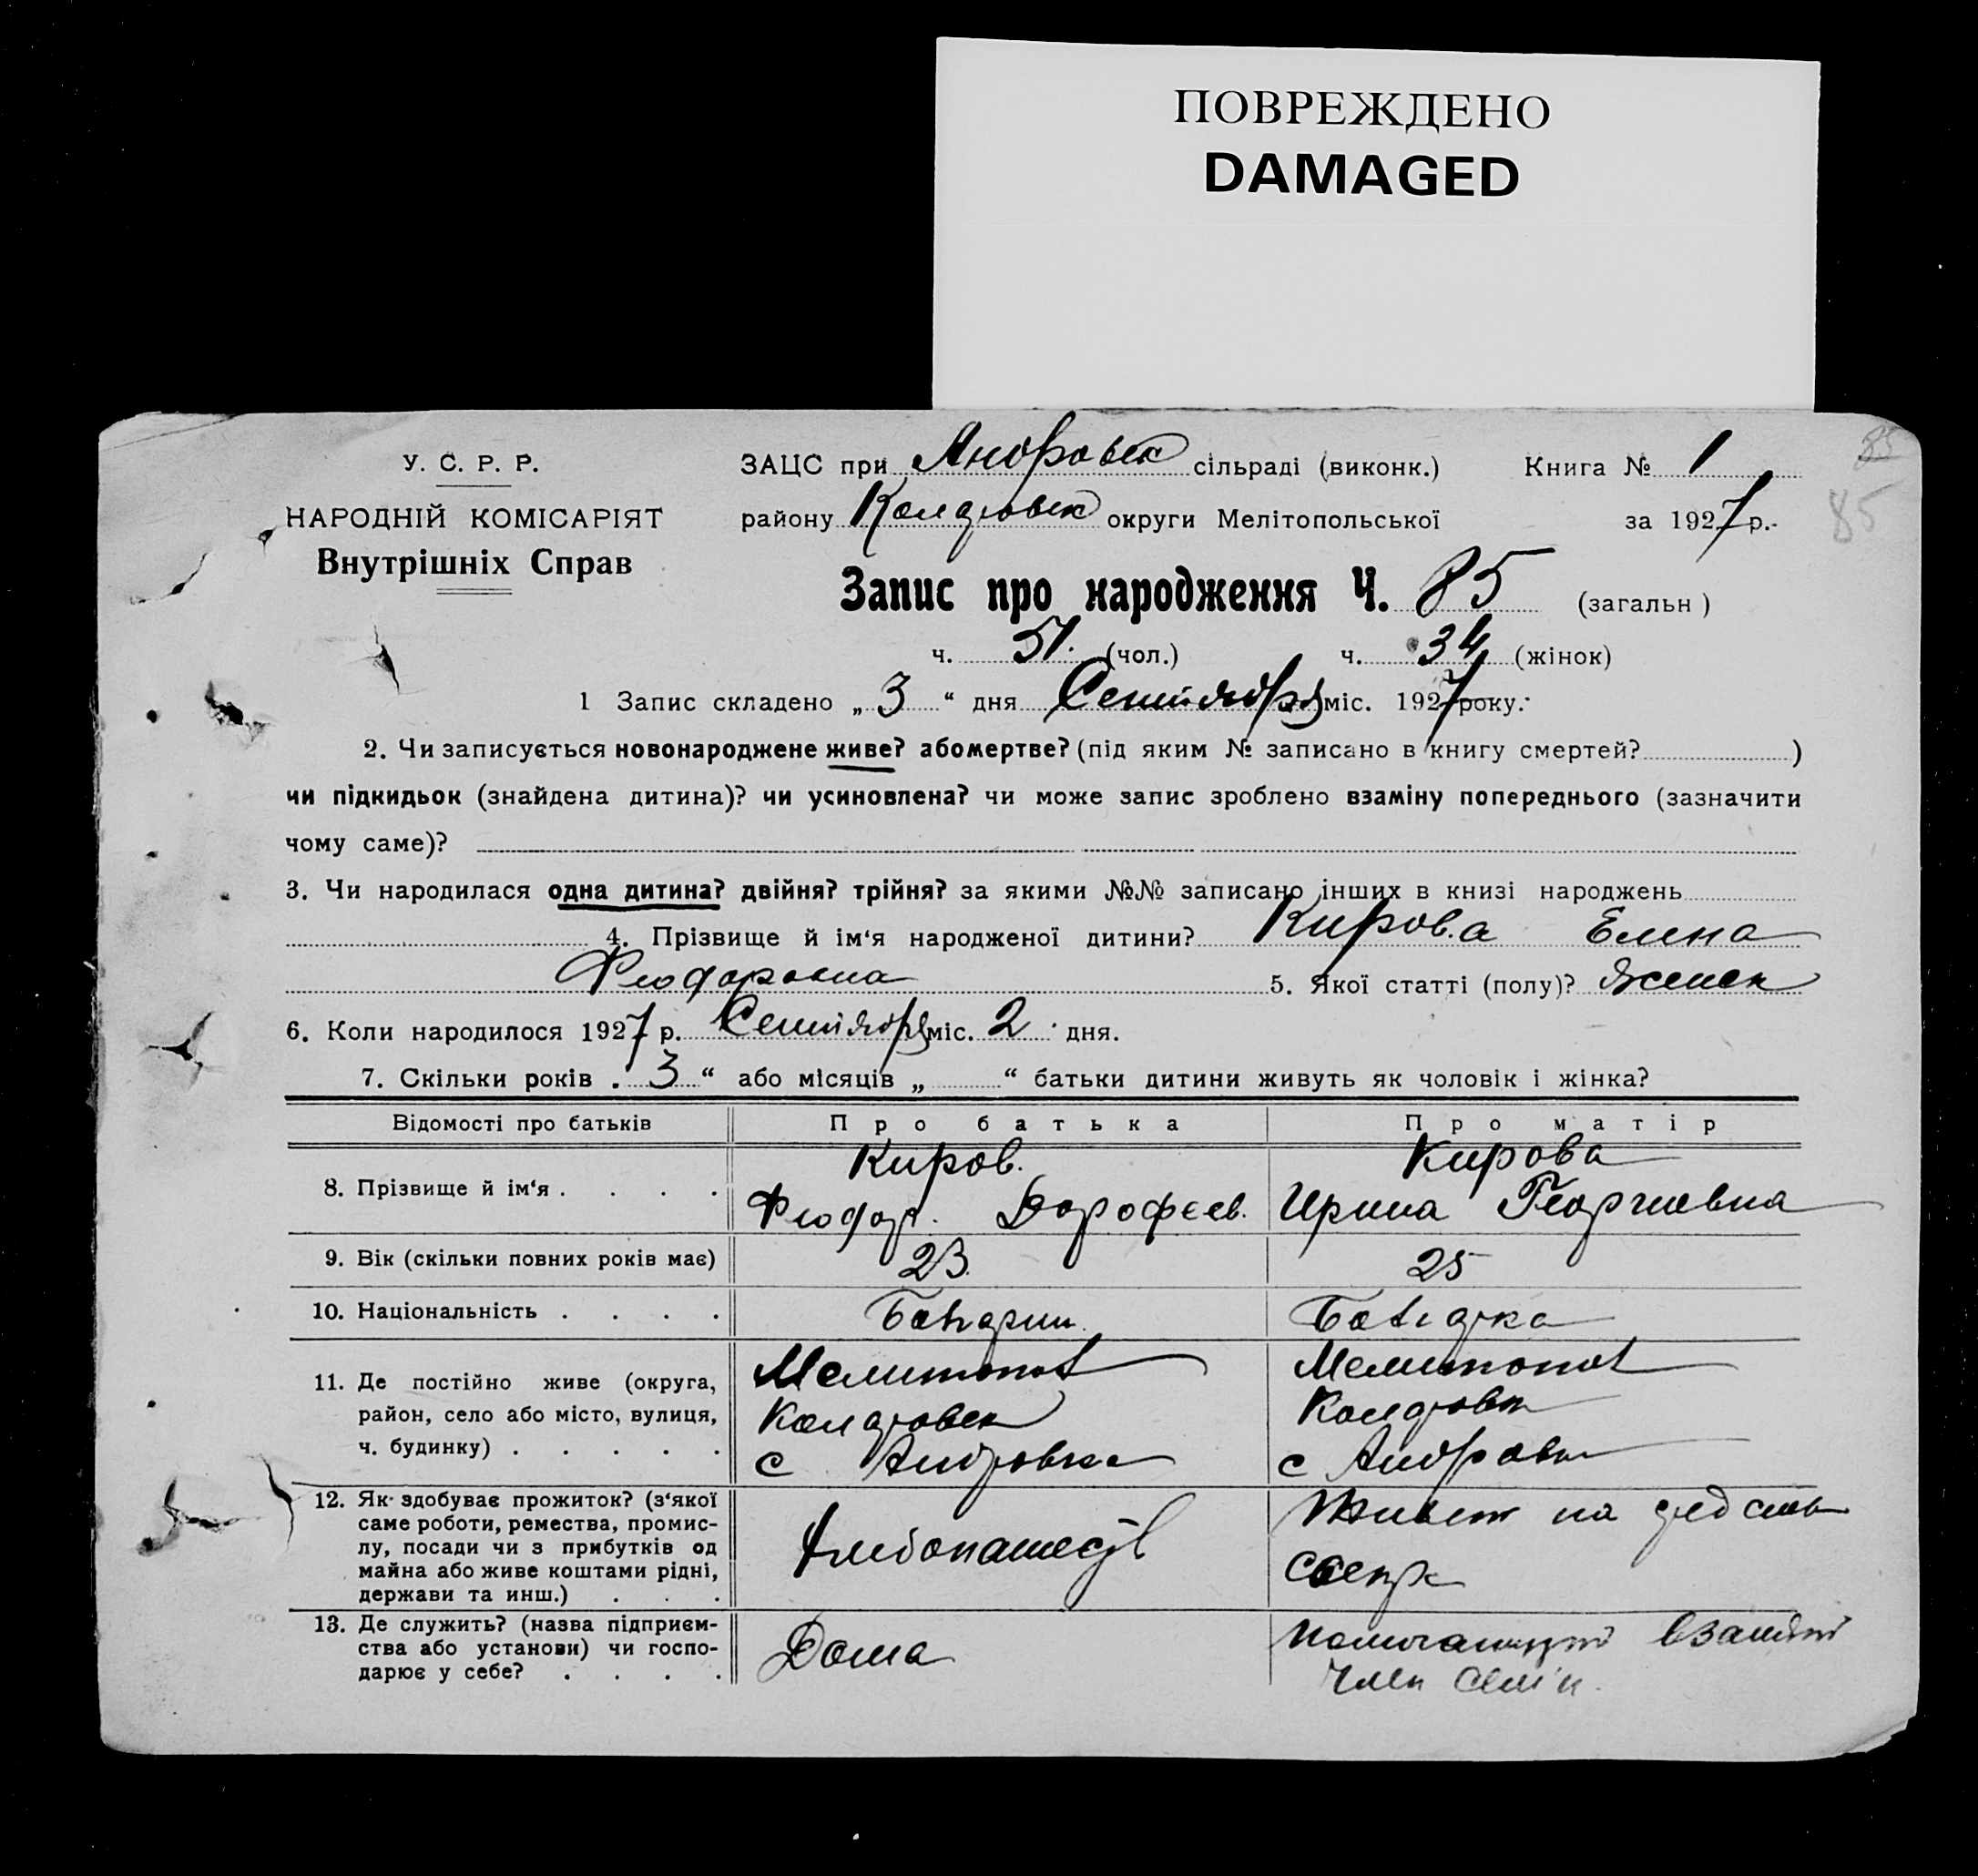 ПОВРЕЖДЕНО
DAMAGED
У. С. Р. Р.
НАРОДНІЙ КОМІСАРІЯТ
Внутрішніх Справ
ЗАЦС при Андровск сільраді (виконк.) Книга № 1
85
району округи Мелітопольської за 1927 р.
85
Запис про народження Ч. 85 (загальн)
ч. 51. (чол.) ч. 34 (жінок)
1 Запис складено „ 3 “ дня Сентября міс. 1927 року.
2. Чи записується новонароджене живе? або мертве? (під яким № записано в книгу смертей? )
чи підкидьок (знайдена дитина)? чи усиновлена? чи може запис зроблено взаміну попереднього (зазначити
чому саме)?
3. Чи народилася одна дитина? двійня? трійня? за якими №№ записано інших в книзі народжень
4. Прізвище й ім‘я народженої дитини? Кирова Елена
Феодоровна 5. Якої статті (полу)? женск
6. Коли народилося 1927 р. Сентября міс. 2 дня.
7. Скільки років „ 3 “ або місяців „ “ батьки дитини живуть як чоловік і жінка?
Відомості про батьків Про батька Про матір
8. Прізвище й ім‘я . . . . Киров. Кирова
Феодор. Дорофеев. Ирина Георгиевна
9. Вік (скільки повних років має) 23. 25
10. Національність . . . . Болгарин Болгарка
11. Де постійно живе (округа, Мелитопол Мелитопол
район, село або місто, вулиця,
ч. будинку) . . . . . с Андровка с Андровк
12. Як здобуває прожиток? (з‘якої
саме роботи, ремества, промис-
лу, посади чи з прибутків од
майна або живе коштами рідні,
держави та инш.) . . . Хлебопашест Живет на
13. Де служить? (назва підприєм-
ства або установи) чи госпо-
дарює у себе? . . . . Дома
член семьи.